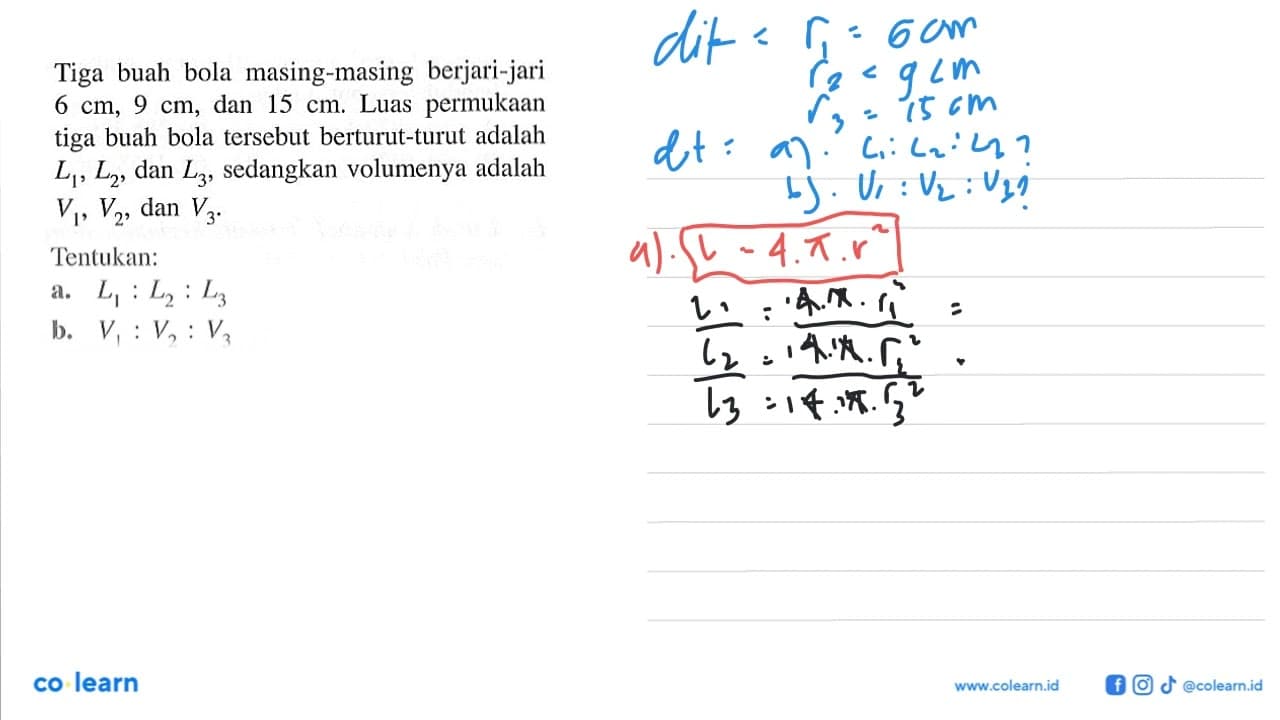 Tiga buah bola masing-masing berjari-jari
6 cm, 9 cm, dan 15 cm. Luas permukaan
tiga buah bola tersebut berturut-turut adalah
L₁, L₂, dan L₃, sedangkan volumenya adalah
V₁, V₂, dan V₃.
Tentukan:
a. L₁ : L₂ : L₃
b. V₁ : V₂ : V₃
dit < r₁ = 6 cm
r₂ < 9 cm
r₃ = 15 cm
dt = a). L₁ : L₂ : L₃ ?
b). V₁ : V₂ : V₃ ?
a). L = 4.π.r²
L₁ = 4.π.r₁² =
L₂ = 4.π.r₂²
L₃ = 4.π.r₃²
co learn
www.colearn.id
@colearn.id